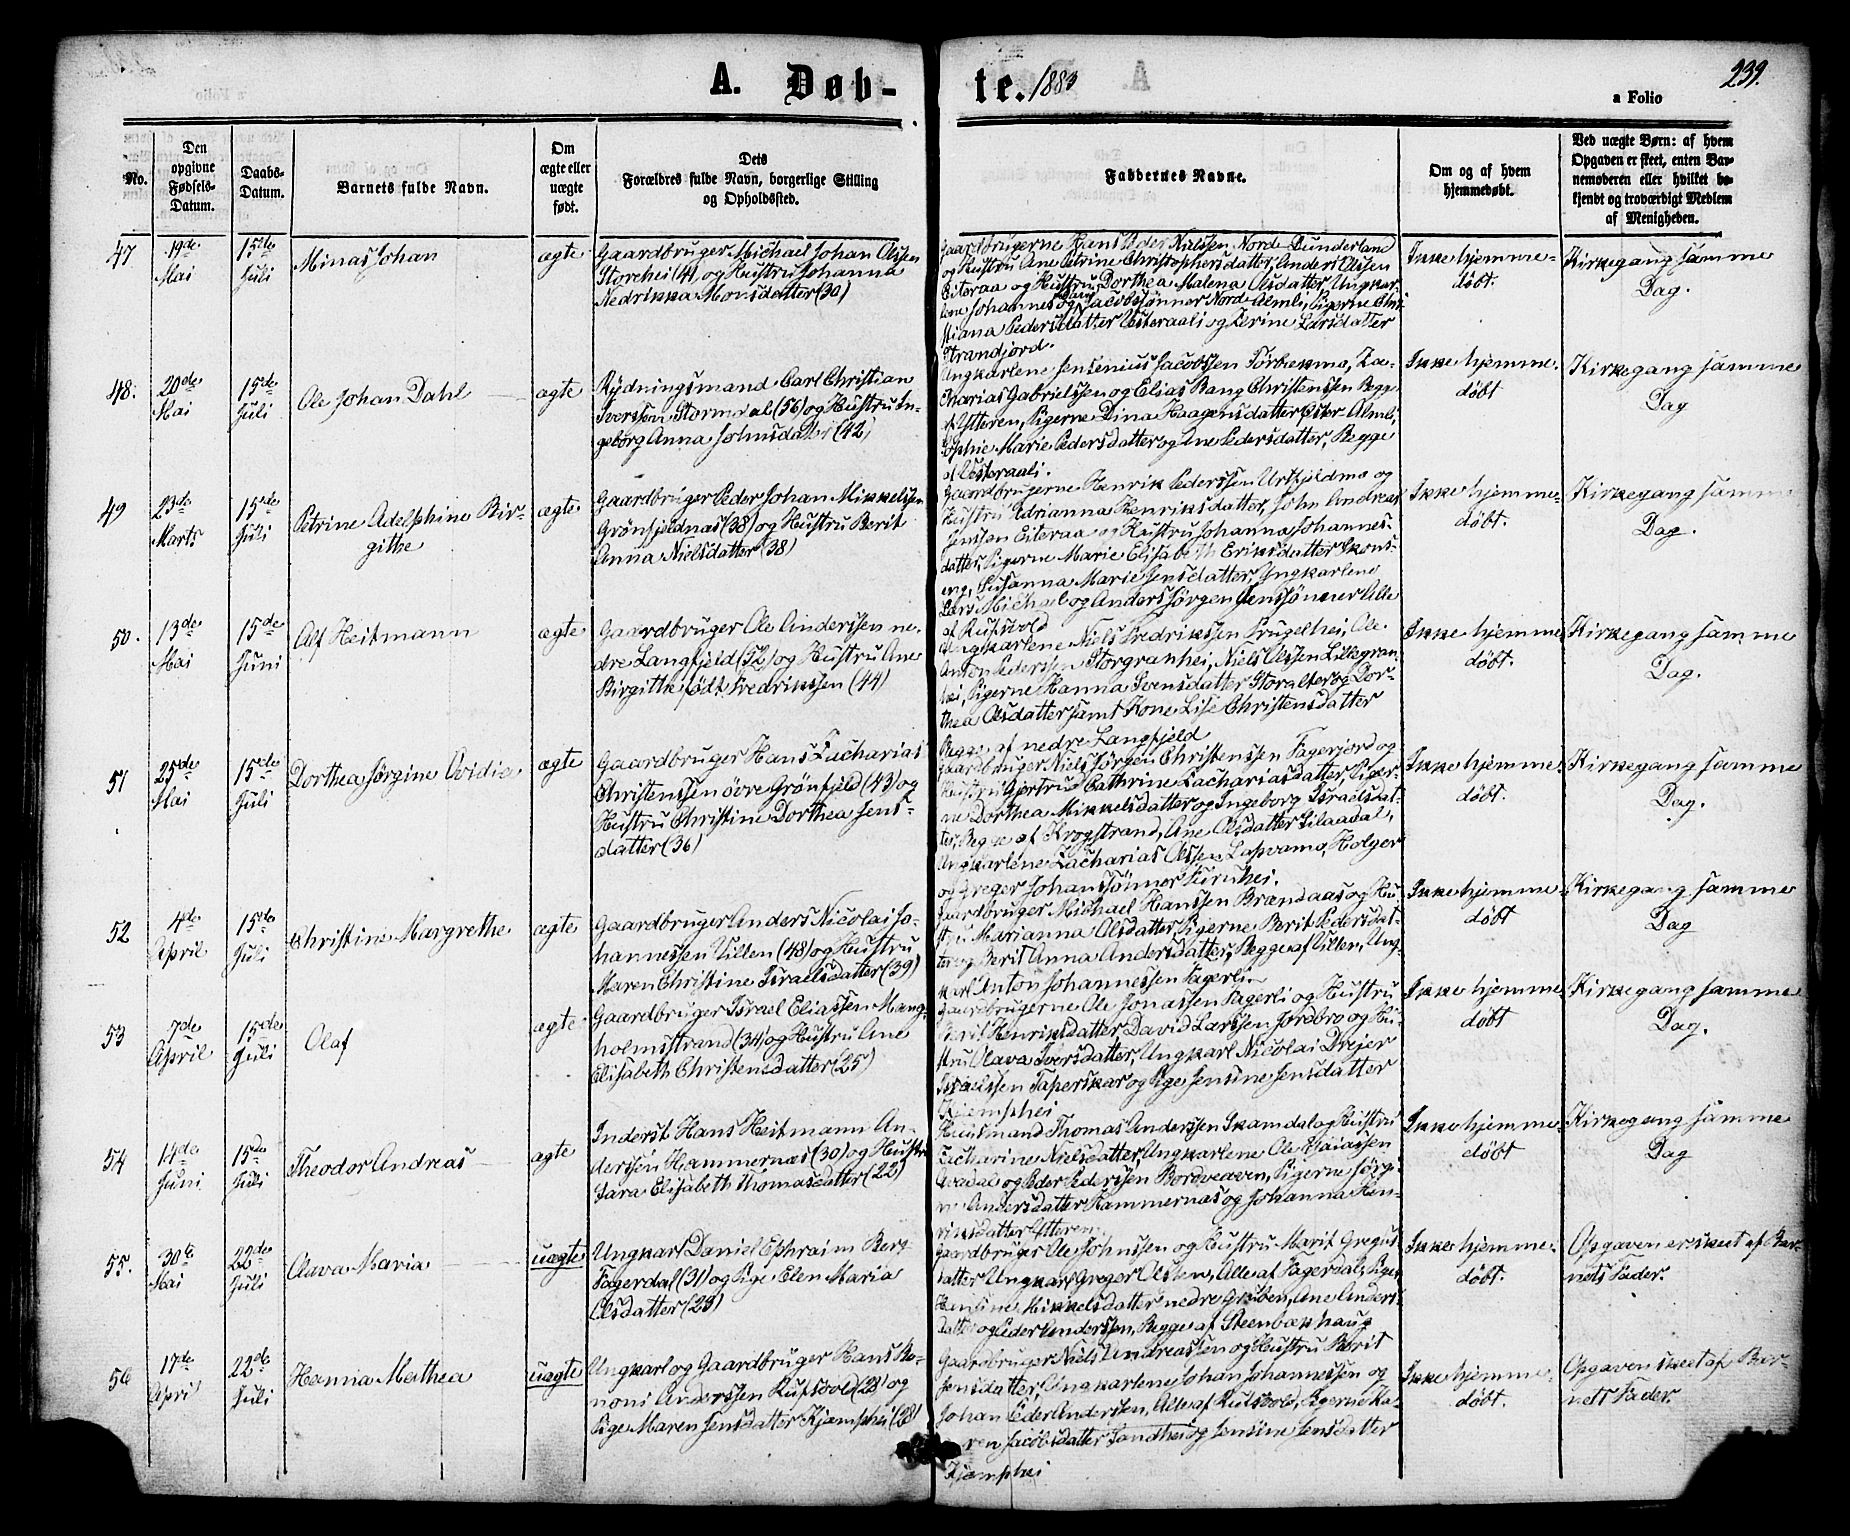 A. Døb-
te. 1883
239.
a Folio
No.
Den opgivne Fødsels-Datum.
Daabs-Datum.
Barnets fulde Navn.
Om ægte eller uægte født.
Dets Forældres fulde Navn, borgerlige Stilling og Opholdssted.
Faddernes Navne.
Om og af hvem hjemmedøbt.
Ved uægte Børn: af hvem Opgaven er skeet, enten Barnemoderen eller hvilket bekjendt og troværdigt Medlem af Menigheden.
47
19de Mai
15de Juli
Minas Johan
ægte
Gaardbruger Michael Johan Olssen
Storehei (41) og Hustru Johanna
Nedrikka Monsdatter (30)
Gaardbrugerne Hans Peder Nielssen Nord-Dunderland
og Hustru Ane Petrine Christophersdatter, Anders Olssen
Eiteraa og Hustru Dorthea Malena Olsdatter, Ungkar-
lene Johannes og Jacobssønner Nord-Almli, Pigerne Chri-
stiana Pedersdatter Vesteraali og Perine Larsdatter
Strandjord.
Ikke hjemme-
døbt.
Kirkegang samme
Dag.
48.
20de Mai
15de Juli
Ole Johan Dahl
ægte
Rydningsmand Carl Christian
Iverssen Stormdal (56) og Hustru In-
geborg Anna Johnsdatter (42)
Ungkarlene Jensenius Jacobssen Torbekmo, Za-
charias Gabrielssen og Elias Bang Christenssen Begge
af Ytteren, Pigerne Dina Haagensdatter Almli,
Sophie Marie Pedersdatter og Ane Pedersdatter, Begge
af Vesteraali.
Ikke hjemme-
døbt
Kirkegang samme
Dag
49
23de Marts
15de Juli
Petrine Adelphine Bir-
githe
ægte
Gaardbruger Peder Johan Mikkelssen
Grønfjeldnæs (38) og Hustru Berit
Anna Nielsdatter (38)
Gaardbrugerne Henrik Pederssen Urtfjeldmo og
Hustru Edrianna Henriksdatter, John Andreas
Jenssen Eiteraa og Hustru Johanna Johannes-
datter, Pigerne Marie Elisabeth Eriksdatter Skons-
eng, Susanna Marie Jensdatter, Ungkarlene
Lars Michael og Anders Jørgen Jenssønner Alle
af Rufsvold
Ikke hjemme-
døbt.
Kirkegang samme
Dag.
50.
13de Mai
15de Juni
Alf Heitmann
ægte
Gaardbruger Ole Anderssen ne-
dre Langfjeld (52) og Hustru Ane
Birgithe født Fredrikssen (44)
Ungkarlene Niels Fredrikssen Prugelhei, Ole
Anton Pederssen Storgranhei, Niels Olssen Lillegran-
hei, Pigerne Hanna Svensdatter Storalter og Dor-
thea Olsdatter samt Kone Lise Christensdatter
Begge af nedre Langfjeld
Ikke hjemme
døbt.
Kirkegang samme
Dag.
51
25de Mai
15de Juli
Dorthea Jørgine Ovidie
ægte
Gaardbruger Hans Zacharias
Christenssen øvre Grønfjeld (43) og
Hustru Christine Dorthea Jens-
datter (36)
Gaardbruger Niels Jørgen Christenssen Fagerjord og
Hustru Gjertrud Cathrine Zachariasdatter, Piger-
ne Dorthea Mikkelsdatter og Ingeborg Israelsdat-
ter, Begge af Krogstrand, Ane Olsdatter Lilaadal,
Ungkarlene Zacharias Olssen Lapvamo, Holger
og Greger Johanssønner Furuhei.
Ikke hjemme-
døbt.
Kirkegang samme
Dag.
52
4de April
15de Juli
Christine Margrethe
ægte
Gaardbruger Anders Nicolai Jo-
hannessen Villen (48) og Hustru
Maren Christine Israelsdatter (39)
Gaardbruger Michael Hanssen Brændaas og Hu-
stru Marianna Olsdatter, Pigerne Berit Pedersdat-
ter og Berit Anna Andersdatter, Begge af Villen, Ung-
karl Anton Johannessen Fagerli
Ikke hjemme-
døbt
Kirkegang samme
Dag
53
7de April
15de Juli
Olaf
ægte
Gaardbruger Israel Eliassen Mang-
holmstrand (34) og Hustru Ane
Elisabeth Christensdatter (25)
Gaardbrugerne Ole Jonassen Fagerli og Hustru
Berit Henriksdatter, David Larssen Jordbro og Hu-
stru Olava Iversdatter, Ungkarl Nicolai Drejer
Israelssen Taperskar og Pige Jensine Jensdatter
Kjemphei
Ikke hjemme-
døbt
Kirkegang samme
Dag.
54
14de Juni
15de Juli
Theodor Andreas
ægte
Inderst Hans Heitmann An-
derssen Hammernæs (30) og Hustru
Sara Elisabeth Thomasdatter (22)
Huusmand Thomas Anderssen Skamdal og Hustru
Zacharine Nielsdatter, Ungkarlene Ole Esaiassen
og Peder Pederssen Bordvedaven, Pigerne Jørgi-
ne Andersdatter Hammernæs og Johanna Hen-
riksdatter Ytteren.
Ikke hjemme-
døbt
Kirkegang samme
Dag
55.
30te Mai
22de Juli
Olava Maria
uægte
Ungkarl Daniel Ephraim Berg
Fagerdal (31) og Pige Elen Maria
Olsdatter (23)
Gaardbruger Ole Johnssen og Hustru Marit Gregus-
datter Ungkarl Greger Olssen, Alle af Fagerdal, Pigen
Hensine Mikkelsdatter nedre Gruben, Ane Anders-
datter og Peder Anderssen, Begge af Steenbækhaug
Ikke hjemme-
døbt.
Opgaven er skeet af Bar-
nets Fader.
56
17de April
22de Juli
Hanna Mathea
uægte
Ungkarl og Gaardbruger Hans Bo-
noni Anderssen Rufsvold (23) og
Pige Maren Jensdatter Kjæmphei (28)
Gaardbruger Niels Andreassen og Hustru Berit
Jensdatter, Ungkarlene Johan Johannessen og
Johan Peder Andersen, Alle af Rufsvold, Pigerne Ka-
ren Jacobsdatter Sandhei og Jensine Jensdatter
Kjæmphei
Ikke hjemme-
døbt.
Opgaven skeet af Bar-
nets Fader.